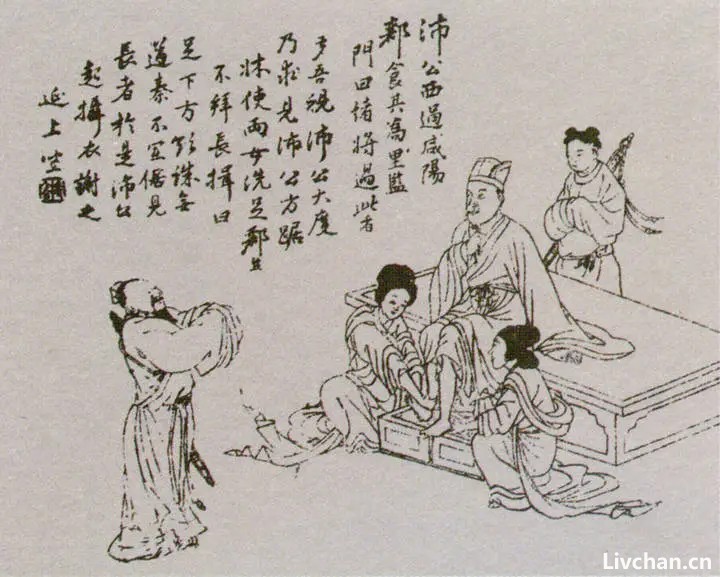 沛公西過咸陽
酈食其為里監
門曰諸將過此者
多吾視沛公大度
乃求見沛公方踞
牀使兩女洗足酈生
不拜長揖曰
足下方欲誅無
道秦不宜倨見
長者於是沛公
起攝衣謝之
延上坐
Livchan.cn